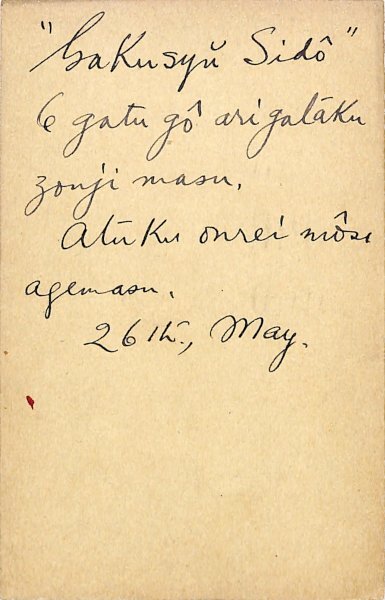 "Gakusyû Sidô"
6 gatu gô arigatáku
zonji masu.
Atuku onrei môsi
agemasu.
26th., May.